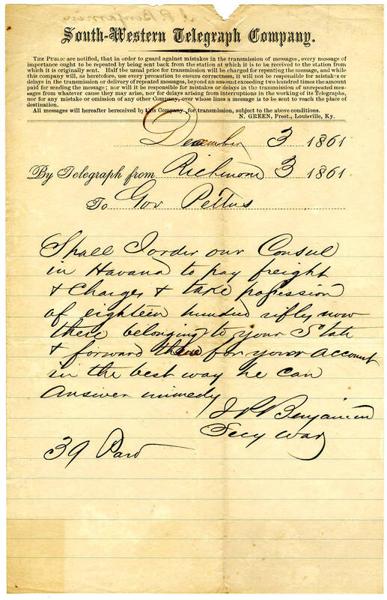 South-Western Telegraph Company.
THE PUBLIC are notified, that in order to guard against mistakes in the transmission of messages, every message of
importance ought to be repeated by being sent back from the station at which it is to be received to the station from
which it is originally sent. Half the usual price for transmission will be charged for repeating the message, and while
this company will, as heretofore, use every precaution to ensure correctness, it will not be responsible for mistakes or
delays in the transmission or delivery of repeated messages, beyond an amount exceeding two hundred times the amount
paid for sending the message; nor will it be responsible for mistakes or delays in the transmission of unrepeated mes-
sages from whatever cause they may arise, nor for delays arising from interruptions in the working of its Telegraphs,
nor for any mistake or omission of any other Company, over whose lines a message is to be sent to reach the place of
destination.
All messages will hereafter be received by this Company, for transmission, subject to the above conditions.
N. GREEN, Prest., Louisville, Ky.
December 3 1861
By Telegraph from Richmond 3 1861
To Gov Pettus
Shall I order our Consul
in Havana to pay freight
& Charges & take possession
of eighteen hundred rifles now
there belonging to your State
& forward them for your account
in the best way he can
Answer immedy
J P Benjamin
Secy War
39 Paid